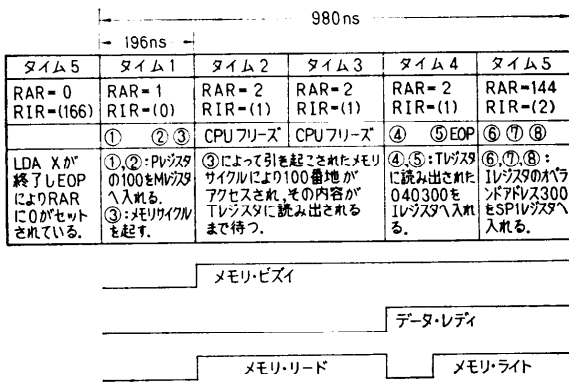 980ns
196ns
タイム5 タイム1 タイム2 タイム3 タイム4 タイム5
RAR=0 RAR=1 RAR=2 RAR=2 RAR=2 RAR=144
RIR=(166) RIR=(0) RIR=(1) RIR=(1) RIR=(1) RIR=(2)
① ②③ CPUフリーズ CPUフリーズ ④ ⑤EOP ⑥⑦⑧
LDA Xが
終了しEOP
によりRAR
に0がセット
されている.
①,②:Pレジスタ
の100をMレジスタ
へ入れる.
③:メモリサイクル
を起す.
③によって引を起こされたメモリ
サイクルにより100番地が
アクセスされ,その内容が
Tレジスタに読み出される
まで待つ.
④,⑤:Tレジスタ
に読み出された
040300を
Iレジスタへ入れ
る.
⑥,⑦,⑧:
Iレジスタのオペラ
ンドアドレス300
をSP1レジスタへ
入れる.
メモリ・ビズイ
データ・レディ
メモリ・リード メモリ・ライト